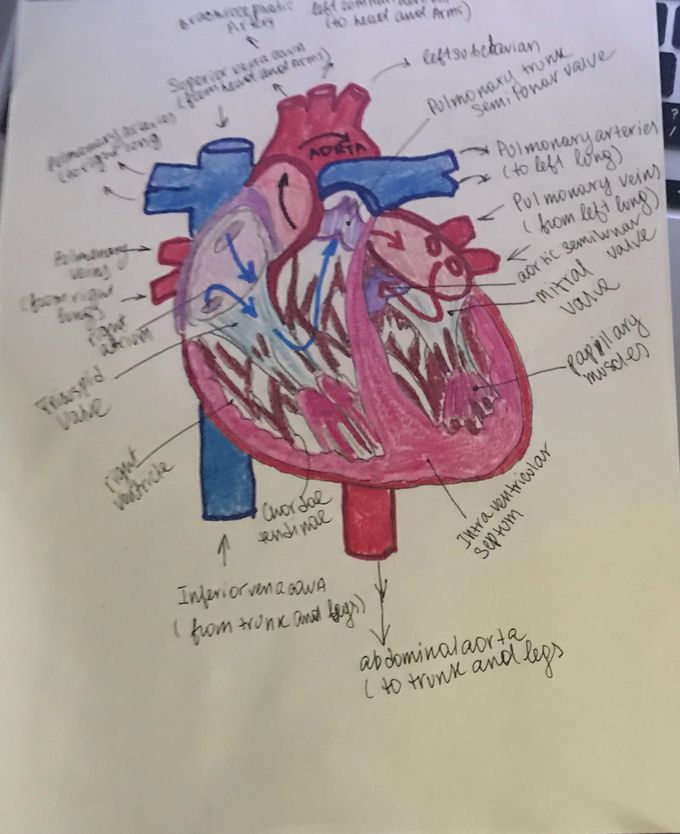 Brachiocephalic
Artery
(to head and Arms)
Superior vena cava
(from head and Arms)
left subclavian
Pulmonary trunk
semilonar valve
Pulmonary arteries
(to right long
AORTA
Pulmonary arteries
(to left long)
Pulmonary veins
(from left long)
aortic semilunar
valve
mitral
valve
Pulmonary
veins
(from right
lungs)
right
atrium
Tricuspid
valve
papillary
muscles
right
ventricle
Chordae
tendinae
Intraventricular
septum
Inferior vena cava
(from trunk and legs)
abdominal aorta
(to trunk and legs